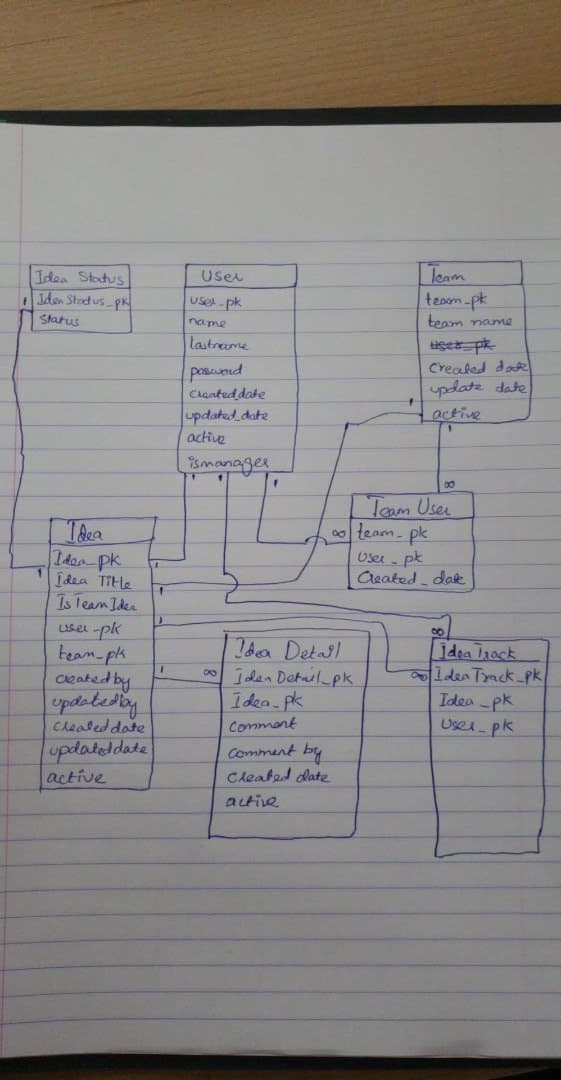 Idea Status
IdeaStatus_pk
Status
User
user_pk
name
lastname
password
created_date
updated_date
active
ismanager
Team
team_pk
team name
user_pk
created date
update date
active
Team User
team_pk
user_pk
Created_date
Idea
Idea_pk
Idea Title
IsTeamIdea
user_pk
team_pk
created by
updated by
created date
updated date
active
Idea Detail
Idea Detail_pk
Idea_pk
comment
comment by
created date
active
Idea Track
Idea Track_pk
Idea_pk
User_pk
1
1
1
1
1
1
1
1
1
1
1
∞
∞
∞
∞
∞